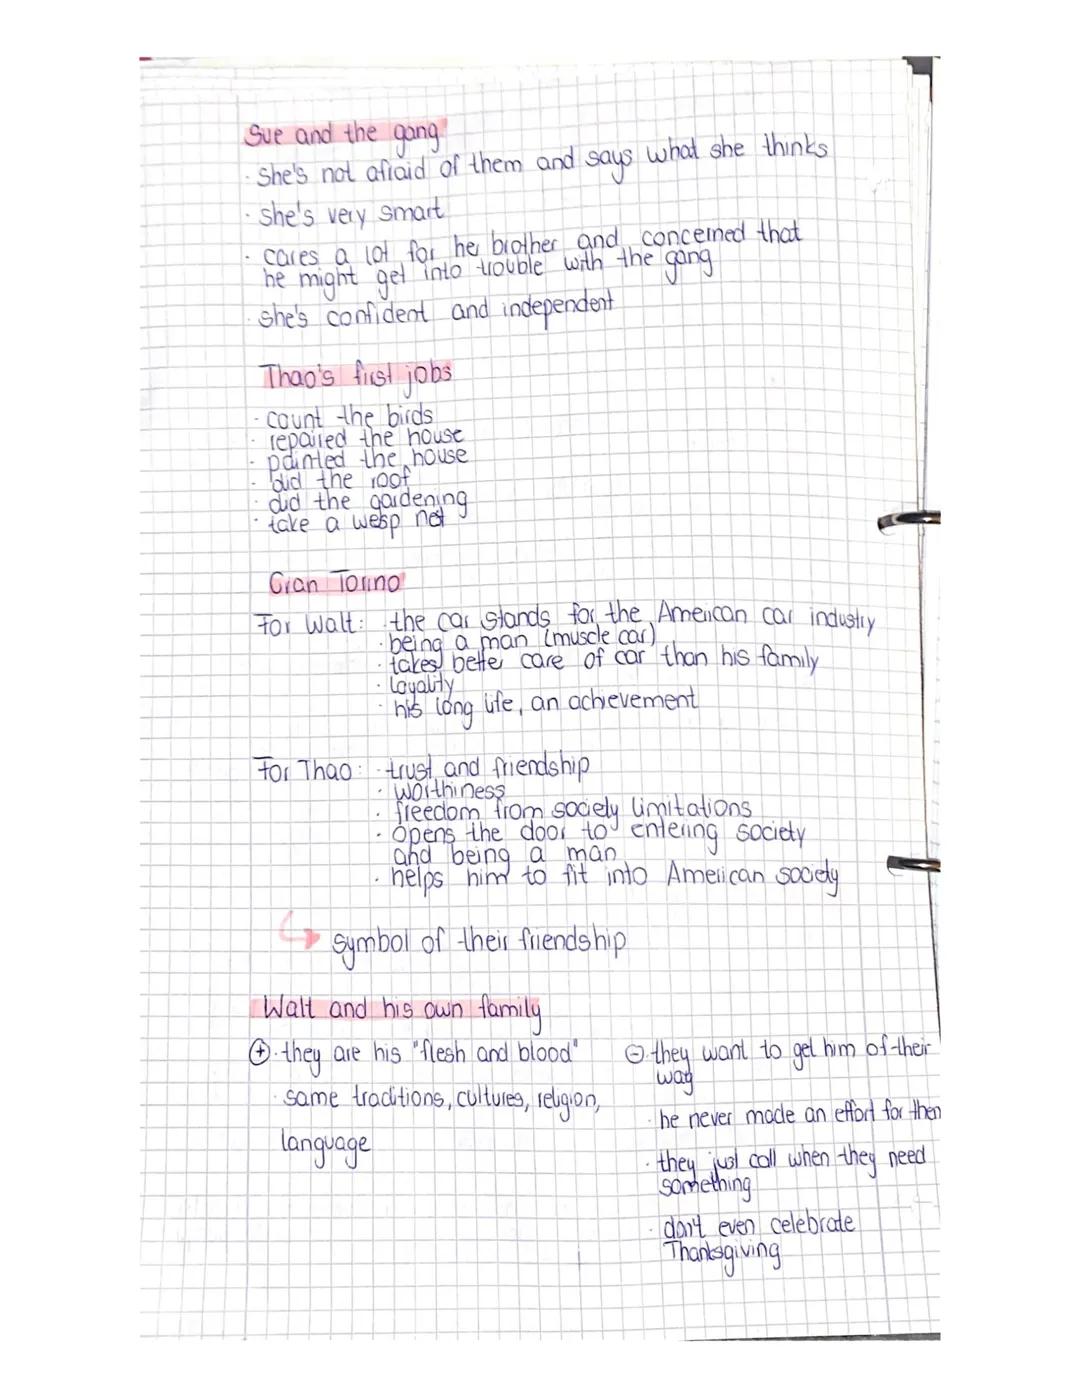 Sue and the gang
· She's not afraid of them and says what she thinks
· she's very smart
· cares a lot for her brother and concerned that
he might get into trouble with the gang
· she's confident and independent
Thao's first jobs
· count the birds
· repaired the house
· painted the house
· did the roof
· did the gardening
· take a wesp nest
Gran Torino
For Walt: · the car stands for the American car industry
· being a man (muscle car)
· takes better care of car than his family
· loyality
· his long life, an achievement
For Thao: · trust and friendship
· worthiness
· freedom from society limitations
· opens the door to entering society
and being a man
· helps him to fit into American society
↳ symbol of their friendship
Walt and his own family
⊕ · they are his "flesh and blood"
· same traditions, cultures, religion,
language
⊖ · they want to get him of their
way
· he never made an effort for them
· they just call when they need
something
· don't even celebrate
Thanksgiving